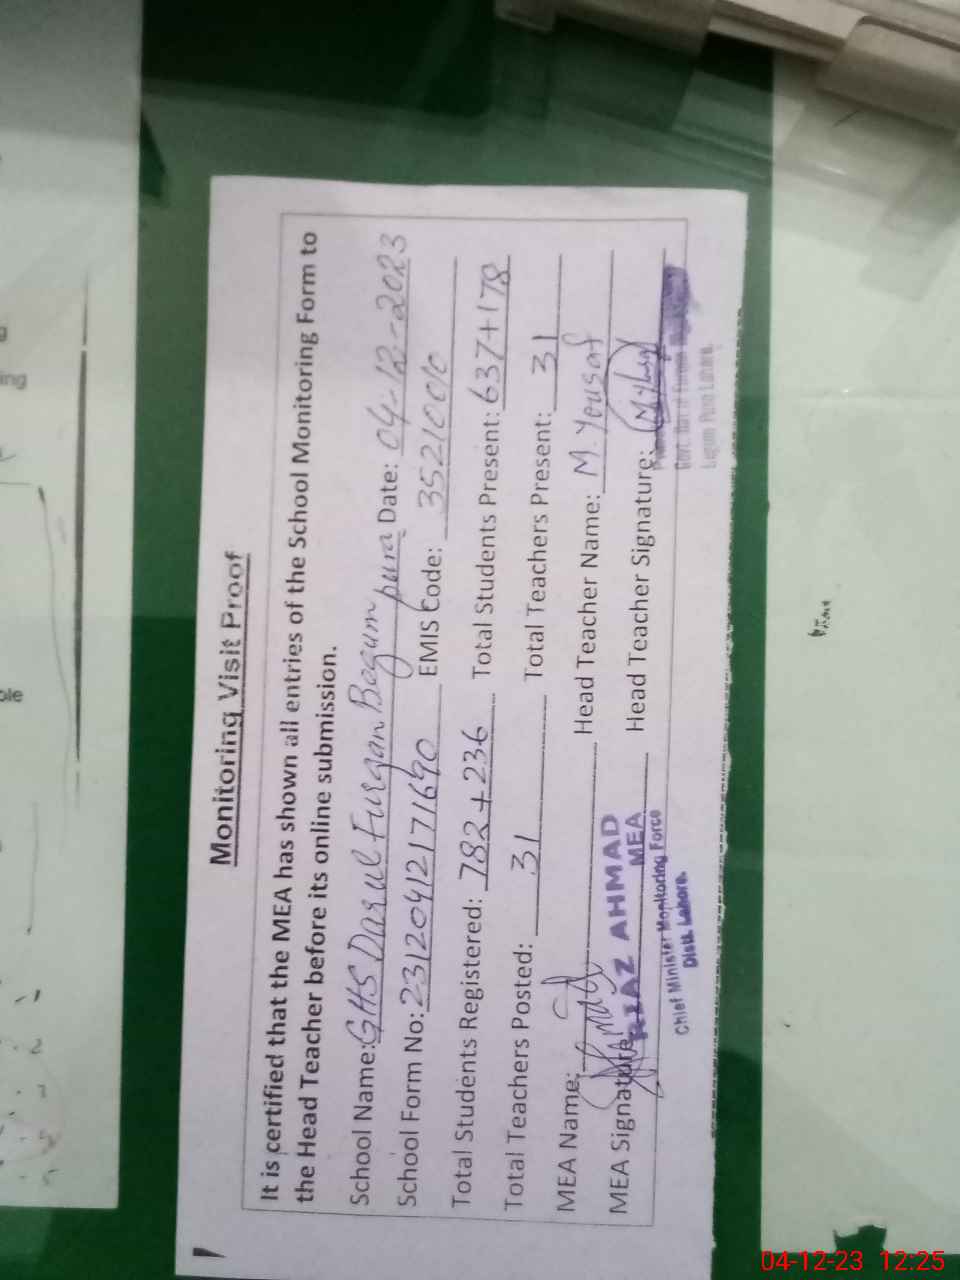 Monitoring Visit Proof
It is certified that the MEA has shown all entries of the School Monitoring Form to
the Head Teacher before its online submission.
School Name: GHS Darul Furqan Begum pura Date: 04-12-2023
School Form No: 2312041217 1690 EMIS Code: 35210010
Total Students Registered: 782+236 Total Students Present: 637+178
Total Teachers Posted: 31 Total Teachers Present: 31
MEA Name: Head Teacher Name: M. Yousaf
MEA Signature Head Teacher Signature:
RIAZ AHMAD
MEA
Chief Minister Monitoring Force
Distt. Lahore.
Govt. Darul Furqan
Begum Pura Lahore.
ing
ole
04-12-23 12:25